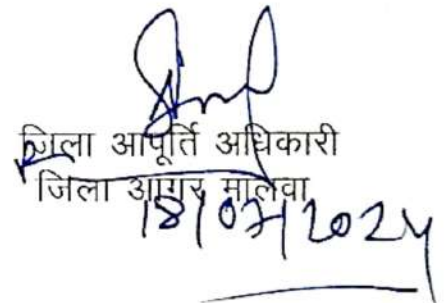 जिला आपूर्ति अधिकारी
जिला आगर मालवा
18/07/2024